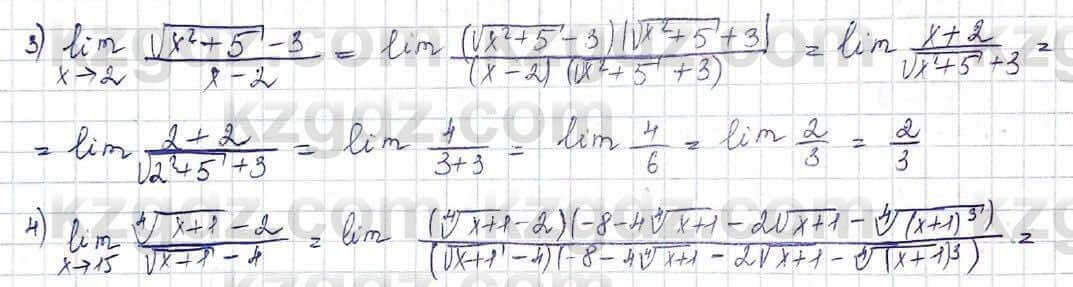 3) lim x→2 (√(x²+5) - 3)/(x - 2) = lim ((√(x²+5) - 3)(√(x²+5) + 3))/((x - 2)(√(x²+5) + 3)) = lim (x+2)/(√(x²+5) + 3) =
= lim (2+2)/(√(2²+5) + 3) = lim 4/(3+3) = lim 4/6 = lim 2/3 = 2/3
4) lim x→15 (⁴√(x+1) - 2)/(√(x+1) - 4) = lim ((⁴√(x+1) - 2)(-8 - 4⁴√(x+1) - 2√(x+1) - ⁴√((x+1)³)))/((√(x+1) - 4)(-8 - 4⁴√(x+1) - 2√(x+1) - ⁴√((x+1)³))) =